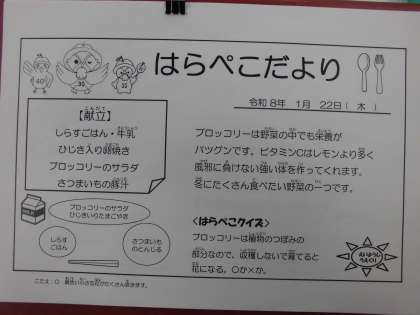 はらぺこだより
令和8年 1月 22日( 木 )
【献立】
しらすごはん・牛乳
ひじき入り卵焼き
ブロッコリーのサラダ
さつまいもの豚汁
ブロッコリーは野菜の中でも栄養が
バツグンです。ビタミンCはレモンより多く
風邪に負けない強い体を作ってくれます。
冬にたくさん食べたい野菜の一つです。
ブロッコリーのサラダ
ひじきいりたまごやき
しらす
ごはん
さつまいも
のとんじる
<はらぺこクイズ>
ブロッコリーは植物のつぼみの
部分なので、収穫しないで育てると
花になる。○か×か。
こたえ:○